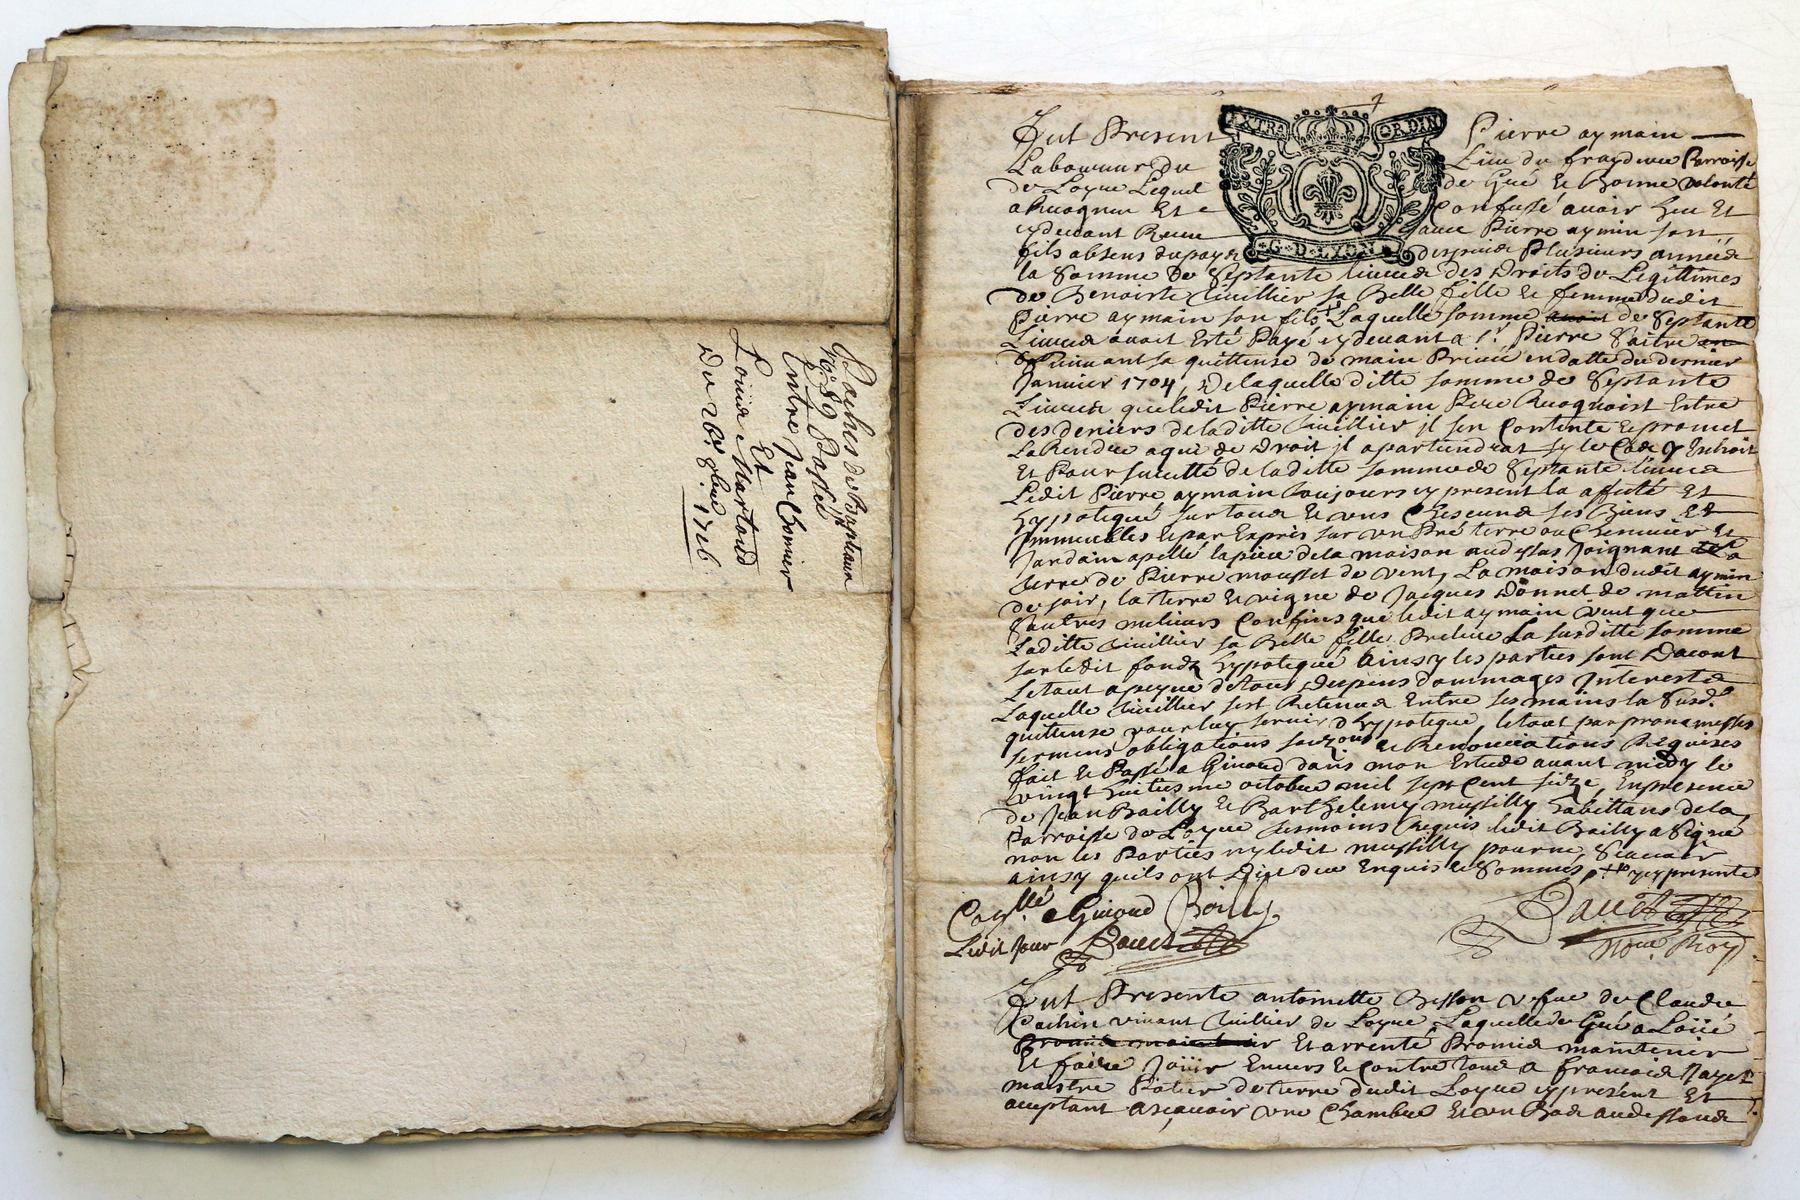 Entre Jean Bonnier
Et
Louise Martoud
1716
EXTRA ORDIN
G·D·LYON
Fut Present Pierre aymain
Laboureur du Lieu du fraydieu Parroisse
de Loyue Lequel de Gré et Bonne volonté
a Recogneu Et Confessé avoir heu Et
cydevant Receu avec Pierre aymin son
fils absens du pays despuis Plusieurs années
la Somme de Septante livres des Droits de Legittimes
de Benoiste Cuillier sa Belle fille et femme dudit
Pierre aymain son fils Laquelle somme avoit de Septante
Livres avoit Esté Payé cydevant a Sr. Pierre
Suivant sa quittense de main Privée en datte du dernier
Janvier 1704, de laquelle ditte somme de Septante
Livres que ledit Pierre aymain Pere Recognoist Estre
des deniers de laditte Cuillier il sen Contente et promet
La Rendre a qui de Droit il apartiendrat sy le Cas y Escheoit
Et Pour seuretté de laditte somme de Septante livres
Ledit Pierre aymain toujours cy present la affecté Et
hypotequé sur tous et uns Chescuns ses Biens Et
jmmeubles et par Expres sur un Pré terre ou Chennevier Et
Jardain apellé la piece de la maison audessas Joignant a
terre de Pierre mousset de vent, La maison dudit aymin
de soir, la terre et vigne de Jacques Donnet de mattin
Sautres milieurs Confins que ledit aymain veut que
Laditte Cuillier sa Belle fille Preleve La susditte somme
sur ledit fondz hypotequé Ainsy les parties sont Dacort
Le tout a peyne de tous Despens dommages Interests
Laquelle Cuillier sest Retenue Entre ses mains la Susd.
quittense pour luy servir dhypoteque, le tout par promesses
sermens obligations et Renonciations Requises
fait et Passé a Giroud dans mon Estude avant midy le
vingt huitiesme octobre mil sept cent seize, En presence
de Jean Bailly et Barthelemy mussilly habittans de la
Parroisse de Loyue tesmoins Requis ledit Bailly a Signé
non les Parties ny ledit mussilly pour ne Scavoir
ainsy quils ont Dit de ce Enquis et Sommés presente
a Giroud Bailly
Ledit Jour
Noe. Roy
Fut Presente antoinette Besson vefue de Claude
Cachin vivant Cuillier de Loyue Laquelle de Gré a Loüé
Et arrenté Promis maintenir
Et faire Joüir Envers et Contre tous a francois
maistre Potier de terre dudit Loyue cy present Et
acceptant ascavoir une Chambre Et un Bas audessous